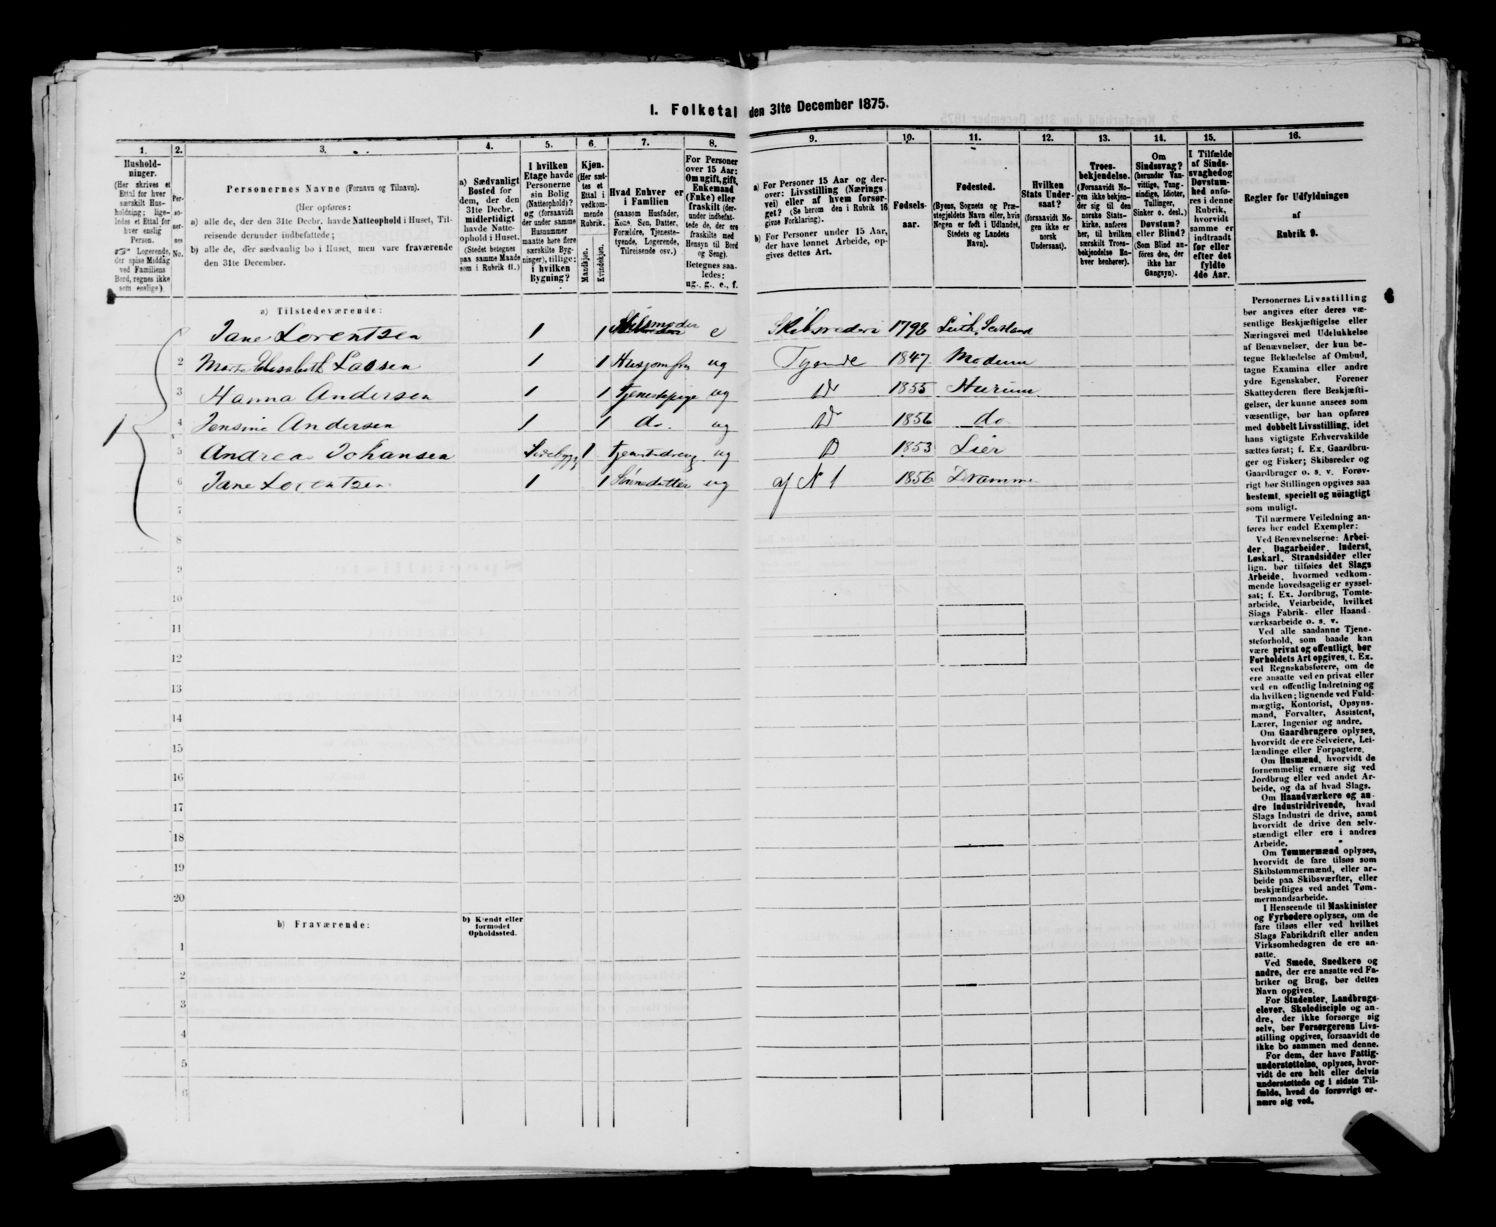 I. Folketal den 31te December 1875.
1. 2. 3. 4. 5. 6. 7. 8. 9. 10. 11. 12. 13. 14. 15. 16.
Hushold-
ninger.
(Her skrives et
Ettal for hver
særskilt Hus-
holdning; lige-
ledes et Ettal for
hver enslig
Person.
Logerende,
der spise Middag
ved Familiens
Bord, regnes ikke
som enslige).
Per-
so-
ner-
nes
No.
Personernes Navne (Fornavn og Tilnavn).
(Her opføres:
a) alle de, der den 31te Decbr. havde Natteophold i Huset, Til-
reisende derunder indbefattede;
b) alle de, der sædvanlig bo i Huset, men vare fraværende
den 31te December.
a) Sædvanligt
Bosted for
dem, der den
31te Decbr.
midlertidigt
havde Natte-
ophold i Huset.
(Stedet betegnes
paa samme Maade
som i Rubrik 11.)
I hvilken
Etage havde
Personerne
sin Bolig
(Natteophold)?
og (forsaavidt
der under samme
Husnummer
maatte høre flere
særskilte Byg-
ninger), tillige:
i hvilken
Bygning?
Kjøn.
(Her sæt-
tes et
Ettal i
vedkom-
mende
Rubrik.
Mandkjøn.
Kvindekjøn.
Hvad Enhver er
i Familien
(saasom Husfader,
Kone, Søn, Datter,
Forældre, Tjeneste-
tyende, Logerende,
Tilreisende osv.)
For Personer
over 15 Aar:
Om ugift, gift,
Enkemand
(Enke) eller
fraskilt (der-
under indbefat-
tede de, der ere
fraskilte med
Hensyn til Bord
og Seng).
Betegnes saa-
ledes:
ug., g., e., f.
a) For Personer 15 Aar og der-
over: Livsstilling (Nærings-
vei) eller af hvem forsør-
get? (Se herom den i Rubrik 16
givne Forklaring).
b) For Personer under 15 Aar,
der have lønnet Arbeide, op-
gives dettes Art.
Fødsels-
aar.
Fødested.
(Byens, Sognets og Præ-
stegjeldets Navn eller, hvis
Nogen er født i Udlandet,
Stedets og Landets
Navn).
Hvilken
Stats Under-
saat?
(forsaavidt No-
gen ikke er
norsk
Undersaat).
Troes-
bekjendelse.
(Forsaavidt No-
gen ikke bekjen-
der sig til den
norske Stats-
kirke, anføres
her, til hvilken
særskilt Troes-
bekjendelse En-
hver henhører).
Om
Sindssvag?
(herunder Van-
vittige, Tung-
sindige, Idioter,
Tullinger,
Sinker o. desl.)
Døvstum?
eller Blind?
(Som Blind an-
føres den, der
ikke har
Gangsyn).
I Tilfælde
af Sinds-
svaghed og
Døvstum-
hed anfø-
res i denne
Rubrik,
hvorvidt
samme er
indtraadt
før eller
efter det
fyldte
4de Aar.
Regler for Udfyldningen
af
Rubrik 9.
a) Tilstedeværende:
Jane Lorentzen 1 1 e Skibsrederi 1798 Leith, Scotland
2 Elisabeth Larsen 1 1 Husjomfru ug Tyende 1847 Modum
3 Hanna Andersen 1 1 Tjenestepige ug D 1855 Hurum
4 Jensine Andersen 1 1 do. ug D 1856 do
5 Andreas Johansen Sidebygg 1 Tjenestedreng ug D 1853 Lier
6 Jane Lorentzen 1 1 Sønnedatter ug af N 1 1856 Dramme
1
7
8
9
10
11
12
13
14
15
16
17
18
19
20
b) Fraværende:
b) Kjendt eller
formodet
Opholdssted.
1
2
3
4
5
6
Personernes Livsstilling
bør angives efter deres væ-
sentlige Beskjæftigelse eller
Næringsvei med Udelukkelse
af Benævnelser, der kun be-
tegne Beklædelse af Ombud,
tagne Examina eller andre
ydre Egenskaber. Forener
Skatteyderen flere Beskjæfti-
gelser, der kunne ansees som
væsentlige, bør han opføres
med dobbelt Livsstilling, idet
hans vigtigste Erhvervskilde
sættes først; f. Ex. Gaardbru-
ger og Fisker; Skibsreder og
Gaardbruger o. s. v. Forøv-
rigt bør Stillingen opgives saa
bestemt, specielt og nøiagtigt
som muligt.
Til nærmere Veiledning an-
føres her endel Exempler:
Ved Benævnelserne: Arbei-
der, Dagarbeider, Inderst,
Løskarl, Strandsidder eller
lign. bør tilføies det Slags
Arbeide, hvormed vedkom-
mende hovedsagelig er syssel-
sat; f. Ex. Jordbrug, Tomte-
arbeide, Veiarbeide, hvilket
Slags Fabrik- eller Haand-
værksarbeide o. s. v.
Ved alle saadanne Tjene-
steforhold, som baade kan
være privat og offentligt, bør
Forholdets Art opgives, t. Ex.
ved Regnskabsførere, om de
ere ansatte ved en privat eller
ved en offentlig Indretning og
da hvilken; lignende ved Fuld-
mægtig, Kontorist, Opsyns-
mand, Forvalter, Assistent,
Lærer, Ingeniør og andre.
Om Gaardbrugere oplyses,
hvorvidt de ere Selveiere, Lei-
lændinge eller Forpagtere.
Om Husmænd, hvorvidt de
fornemmelig ernære sig ved
Jordbrug eller ved andet Ar-
beide, og da af hvad Slags.
Om Haandværkere og an-
dre Industridrivende, hvad
Slags Industri de drive, samt
hvorvidt de drive den selv-
stændigt eller ere i andres
Arbeide.
Om Tømmermænd oplyses,
hvorvidt de fare tilsøs som
Skibstømmermænd, eller ar-
beide paa Skibsværfter, eller
beskjæftiges ved andet Tøm-
mermandsarbeide.
I Henseende til Maskinister
og Fyrbødere oplyses, om de
fare tilsøs eller ved hvilket
Slags Fabrikdrift eller anden
Virksomhedsgren de ere an-
satte.
Ved Smede, Snedkere og
andre, der ere ansatte ved Fa-
briker og Brug, bør dettes
Navn opgives.
For Studenter, Landbrugs-
elever, Skoledisciple og an-
dre, der ikke forsørge sig
selv, bør Forsørgerens Livs-
stilling opgives, forsaavidt de
ikke bo sammen med denne.
For dem, der have Fattig-
understøttelse, oplyses, hvor-
vidt de ere helt eller delvis
understøttede og i sidste Til-
fælde, hvad de forøvrigt er-
nære sig ved.